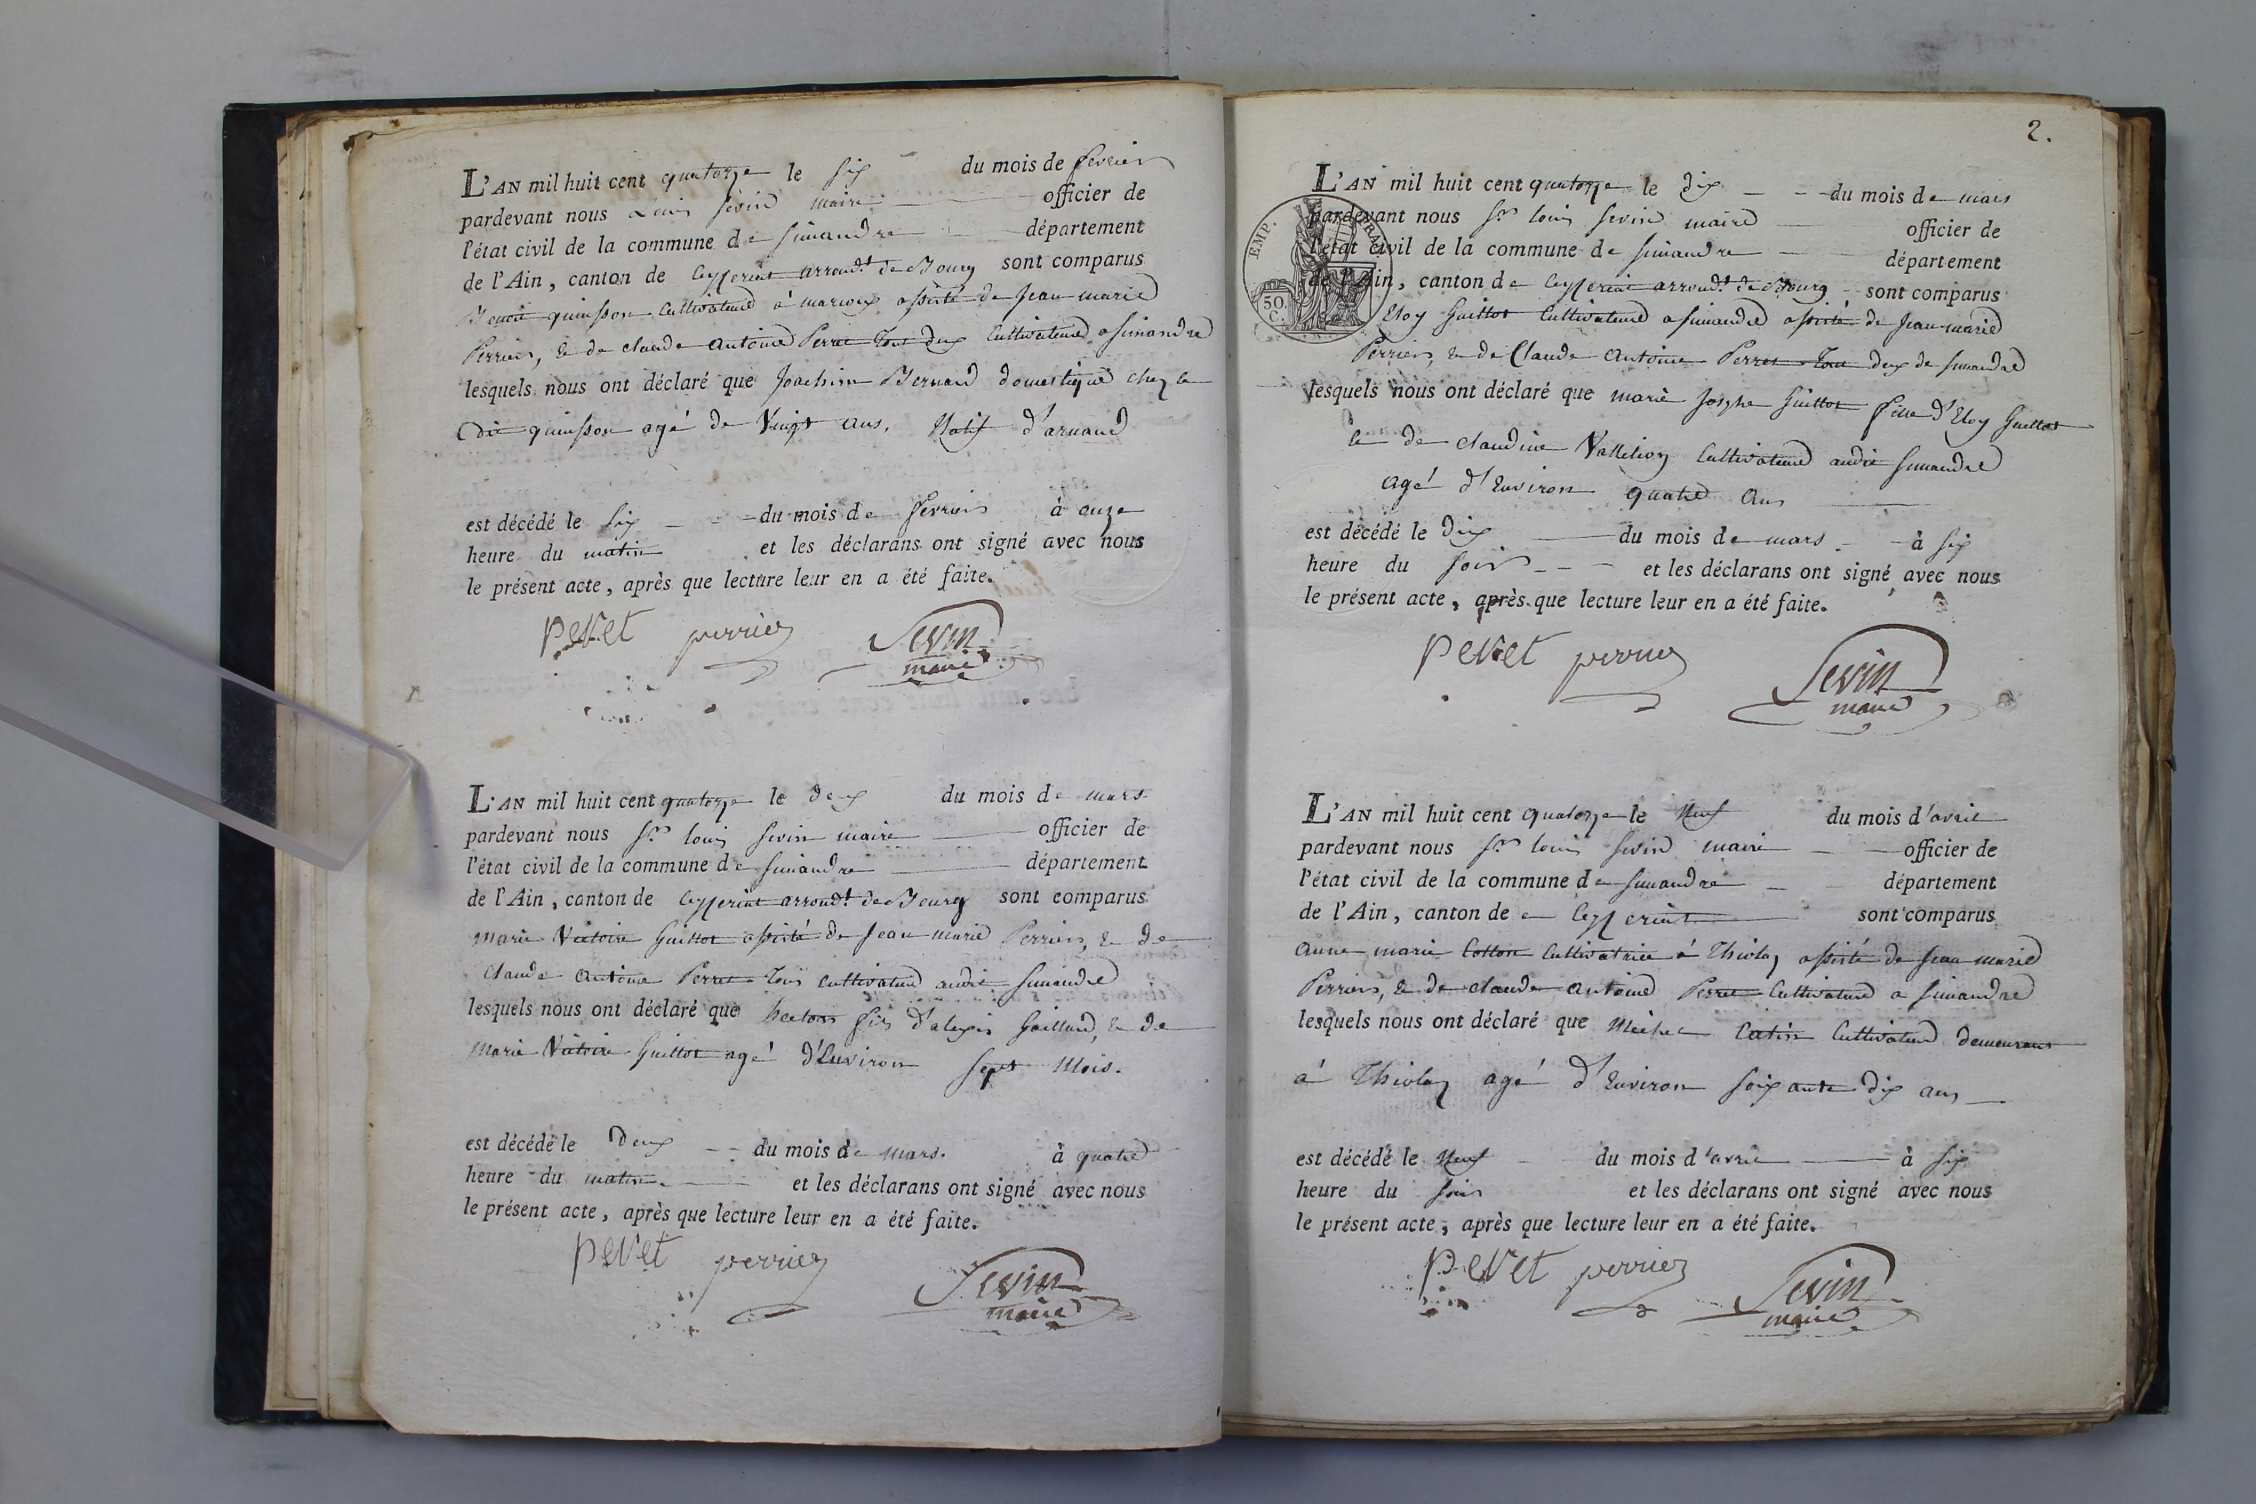 L'AN mil huit cent quatorze le six du mois de fevrier
pardevant nous Louis sevin maire officier de
l'état civil de la commune de simandre département
de l'Ain, canton de Ceyzeriat arrondt de Bourg sont comparus
Benoit quinsson Cultivateur à marioux assisté de Jean marie
Perrier, & de claude antoine Perret Tous deux Cultivateurs a simandre
lesquels nous ont déclaré que Joachim Bernard domestique chez le
dit quinsson agé de Vingt ans, Natif d'arnand
est décédé le six du mois de fevrier à onze
heure du matin et les déclarans ont signé avec nous
le présent acte, après que lecture leur en a été faite.
Peret perrier Sevin
maire
L'AN mil huit cent quatorze le deux du mois de mars
pardevant nous sr. louis sevin maire officier de
l'état civil de la commune de simandre département
de l'Ain, canton de Ceyzeriat arrondt de Bourg sont comparus
Marie Victoire Guillot assisté de Jean marie Perrier, & de
Claude antoine Perret Tous cultivateurs audit simandre
lesquels nous ont déclaré que fils d'alexis Gaillard, & de
Marie Victoire Guillot agé d'Environ sept Mois.
est décédé le Deux du mois de mars. à quatre
heure du matin. et les déclarans ont signé avec nous
le présent acte, après que lecture leur en a été faite.
Peret perrier Sevin
maire
2.
EMP. FRA
50.
C.
L'AN mil huit cent quatorze le dix du mois de mars
pardevant nous sr louis sevin maire officier de
l'état civil de la commune de simandre département
de l'Ain, canton de Ceyzeriat arrondt de Bourg sont comparus
Eloy Guillot Cultivateur a simandre assisté de Jean marie
Perrier, & de Claude antoine Perret Tous deux de simandre
lesquels nous ont déclaré que marie Josephe Guillot fille d'Eloy Guillot
& de claudine Cultivateurs audit simandre
agé d'Environ quatre ans
est décédé le Dix du mois de mars. à six
heure du soir et les déclarans ont signé avec nous
le présent acte, après que lecture leur en a été faite.
Peret perrier Sevin
maire
L'AN mil huit cent quatorze le Neuf du mois d'avril
pardevant nous sr louis sevin maire officier de
l'état civil de la commune de simandre département
de l'Ain, canton de Ceyzeriat sont comparus
anne marie Cotton Cultivatrice à Thiolay assisté de Jean marie
Perrier, & de claude antoine Perret Cultivateurs a simandre
lesquels nous ont déclaré que Michel Cultivateur demeurant
à Thiolay agé d'Environ soixante dix ans
est décédé le Neuf du mois d'avril à six
heure du soir et les déclarans ont signé avec nous
le présent acte, après que lecture leur en a été faite.
Peret perrier Sevin
maire